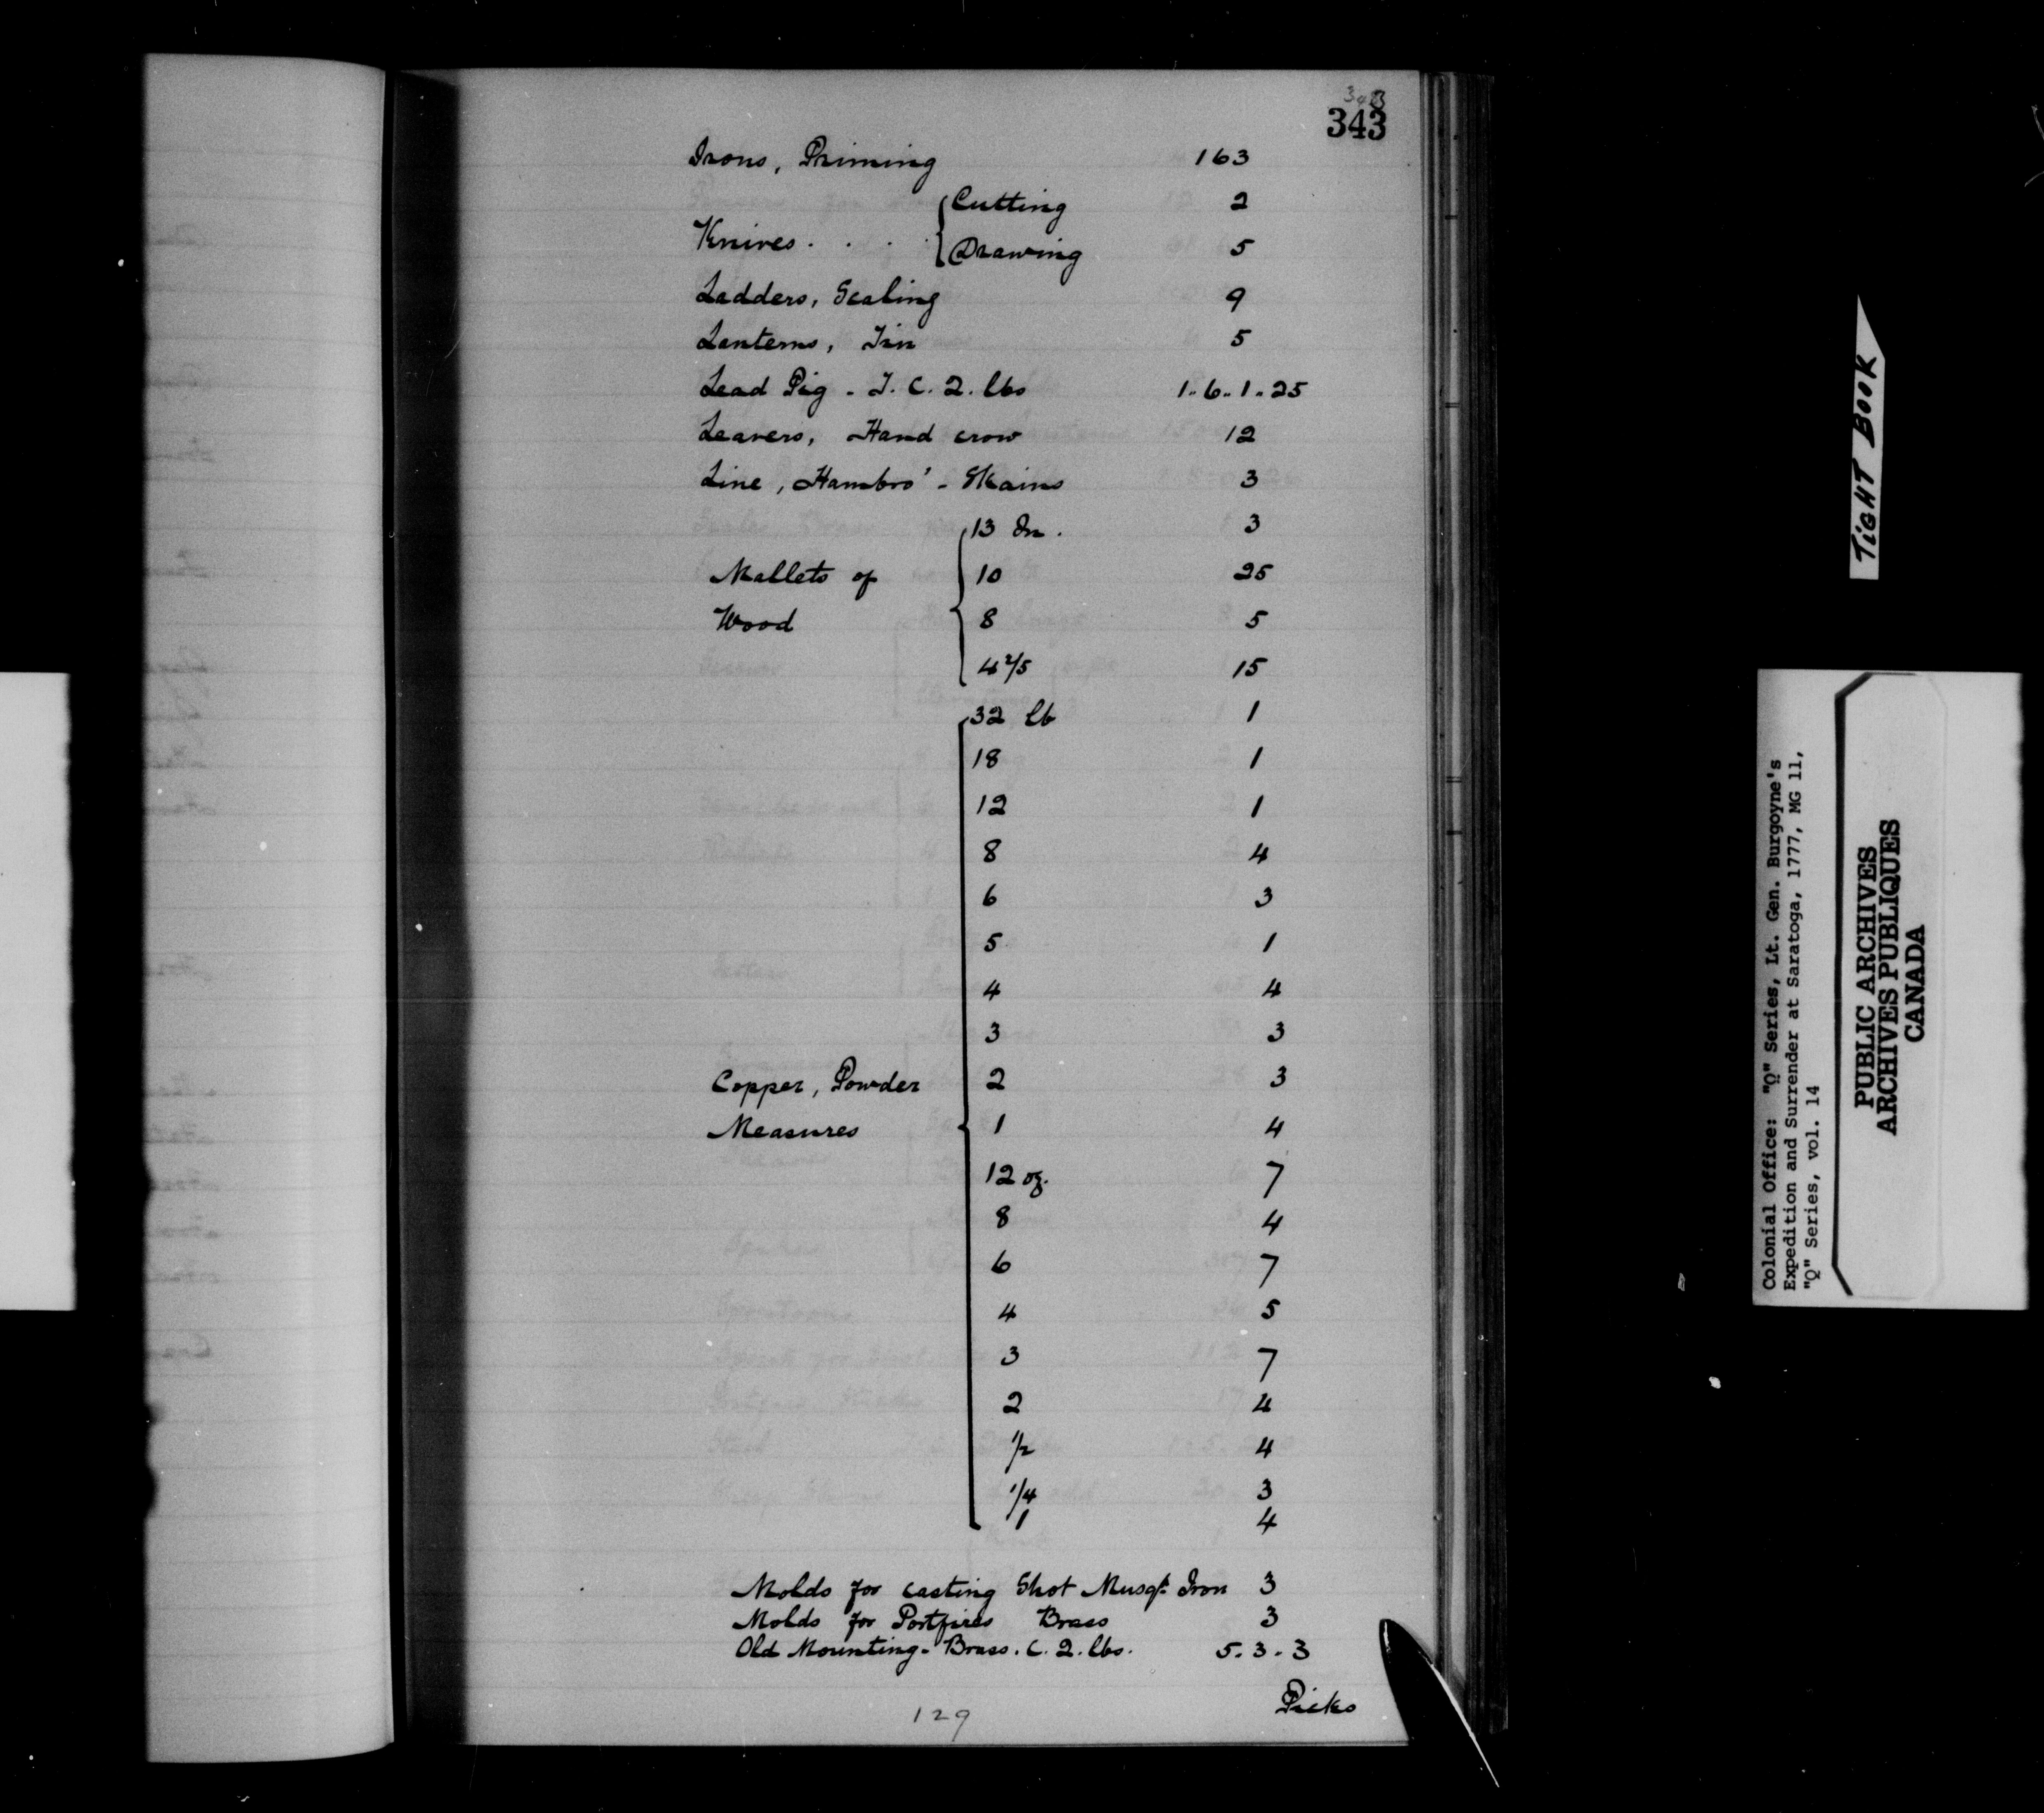 343
343
Irons, Priming 163
Cutting 2
Knives . . . .
Drawing 5
Ladders, Scaling 9
Lanterns, Tin 5
Lead Pig - T. C. 2. lbs 1..6..1..25
Leavers, Hand crow 12
Line, Hambro' - Skains 3
13 In. 3
Mallets of 10 25
Wood 8 5
4 2/5 15
32 lb 1
18 1
12 1
8 4
6 3
5 1
4 4
3 3
Copper, Powder 2 3
Measures 1 4
12 oz. 7
8 4
6 7
4 5
3 7
2 4
1/2 4
1/4 3
1 4
Molds for casting Shot Musqt. Iron 3
Molds for Portfires Brass 3
Old Mounting - Brass. C. 2. lbs. 5.3.3
Picks
129
TIGHT BOOK
Colonial Office: "Q" Series, Lt. Gen. Burgoyne's
Expedition and Surrender at Saratoga, 1777, MG 11,
"Q" Series, vol. 14
PUBLIC ARCHIVES
ARCHIVES PUBLIQUES
CANADA